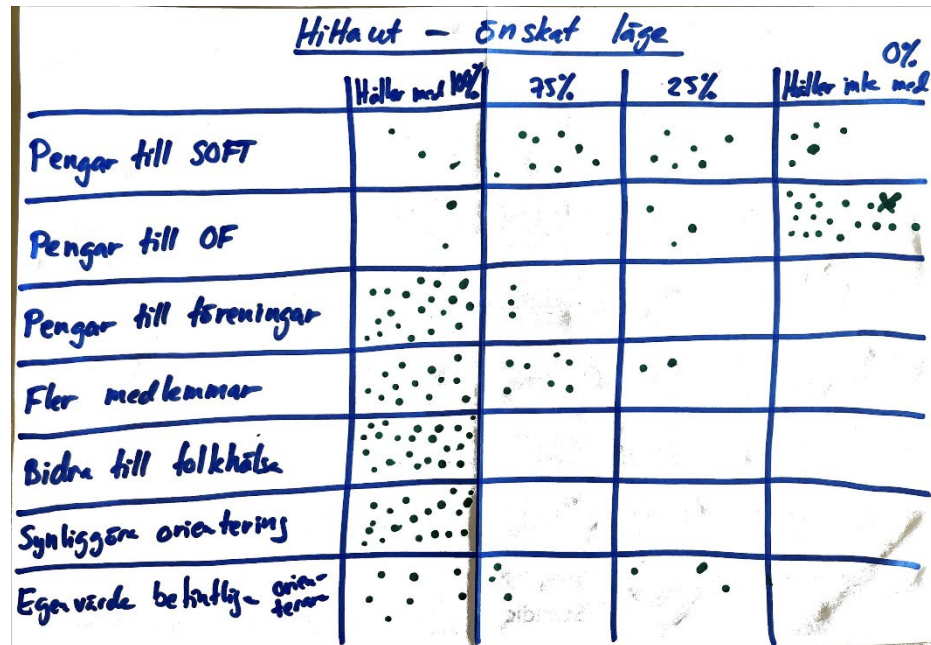 Hittaut - önskat läge
Håller med 100% 75% 25% 0% Håller inte med
Pengar till SOFT
Pengar till OF
Pengar till föreningar
Fler medlemmar
Bidra till folkhälsa
Synliggöra orientering
Egenvärde befintliga orien-
terare